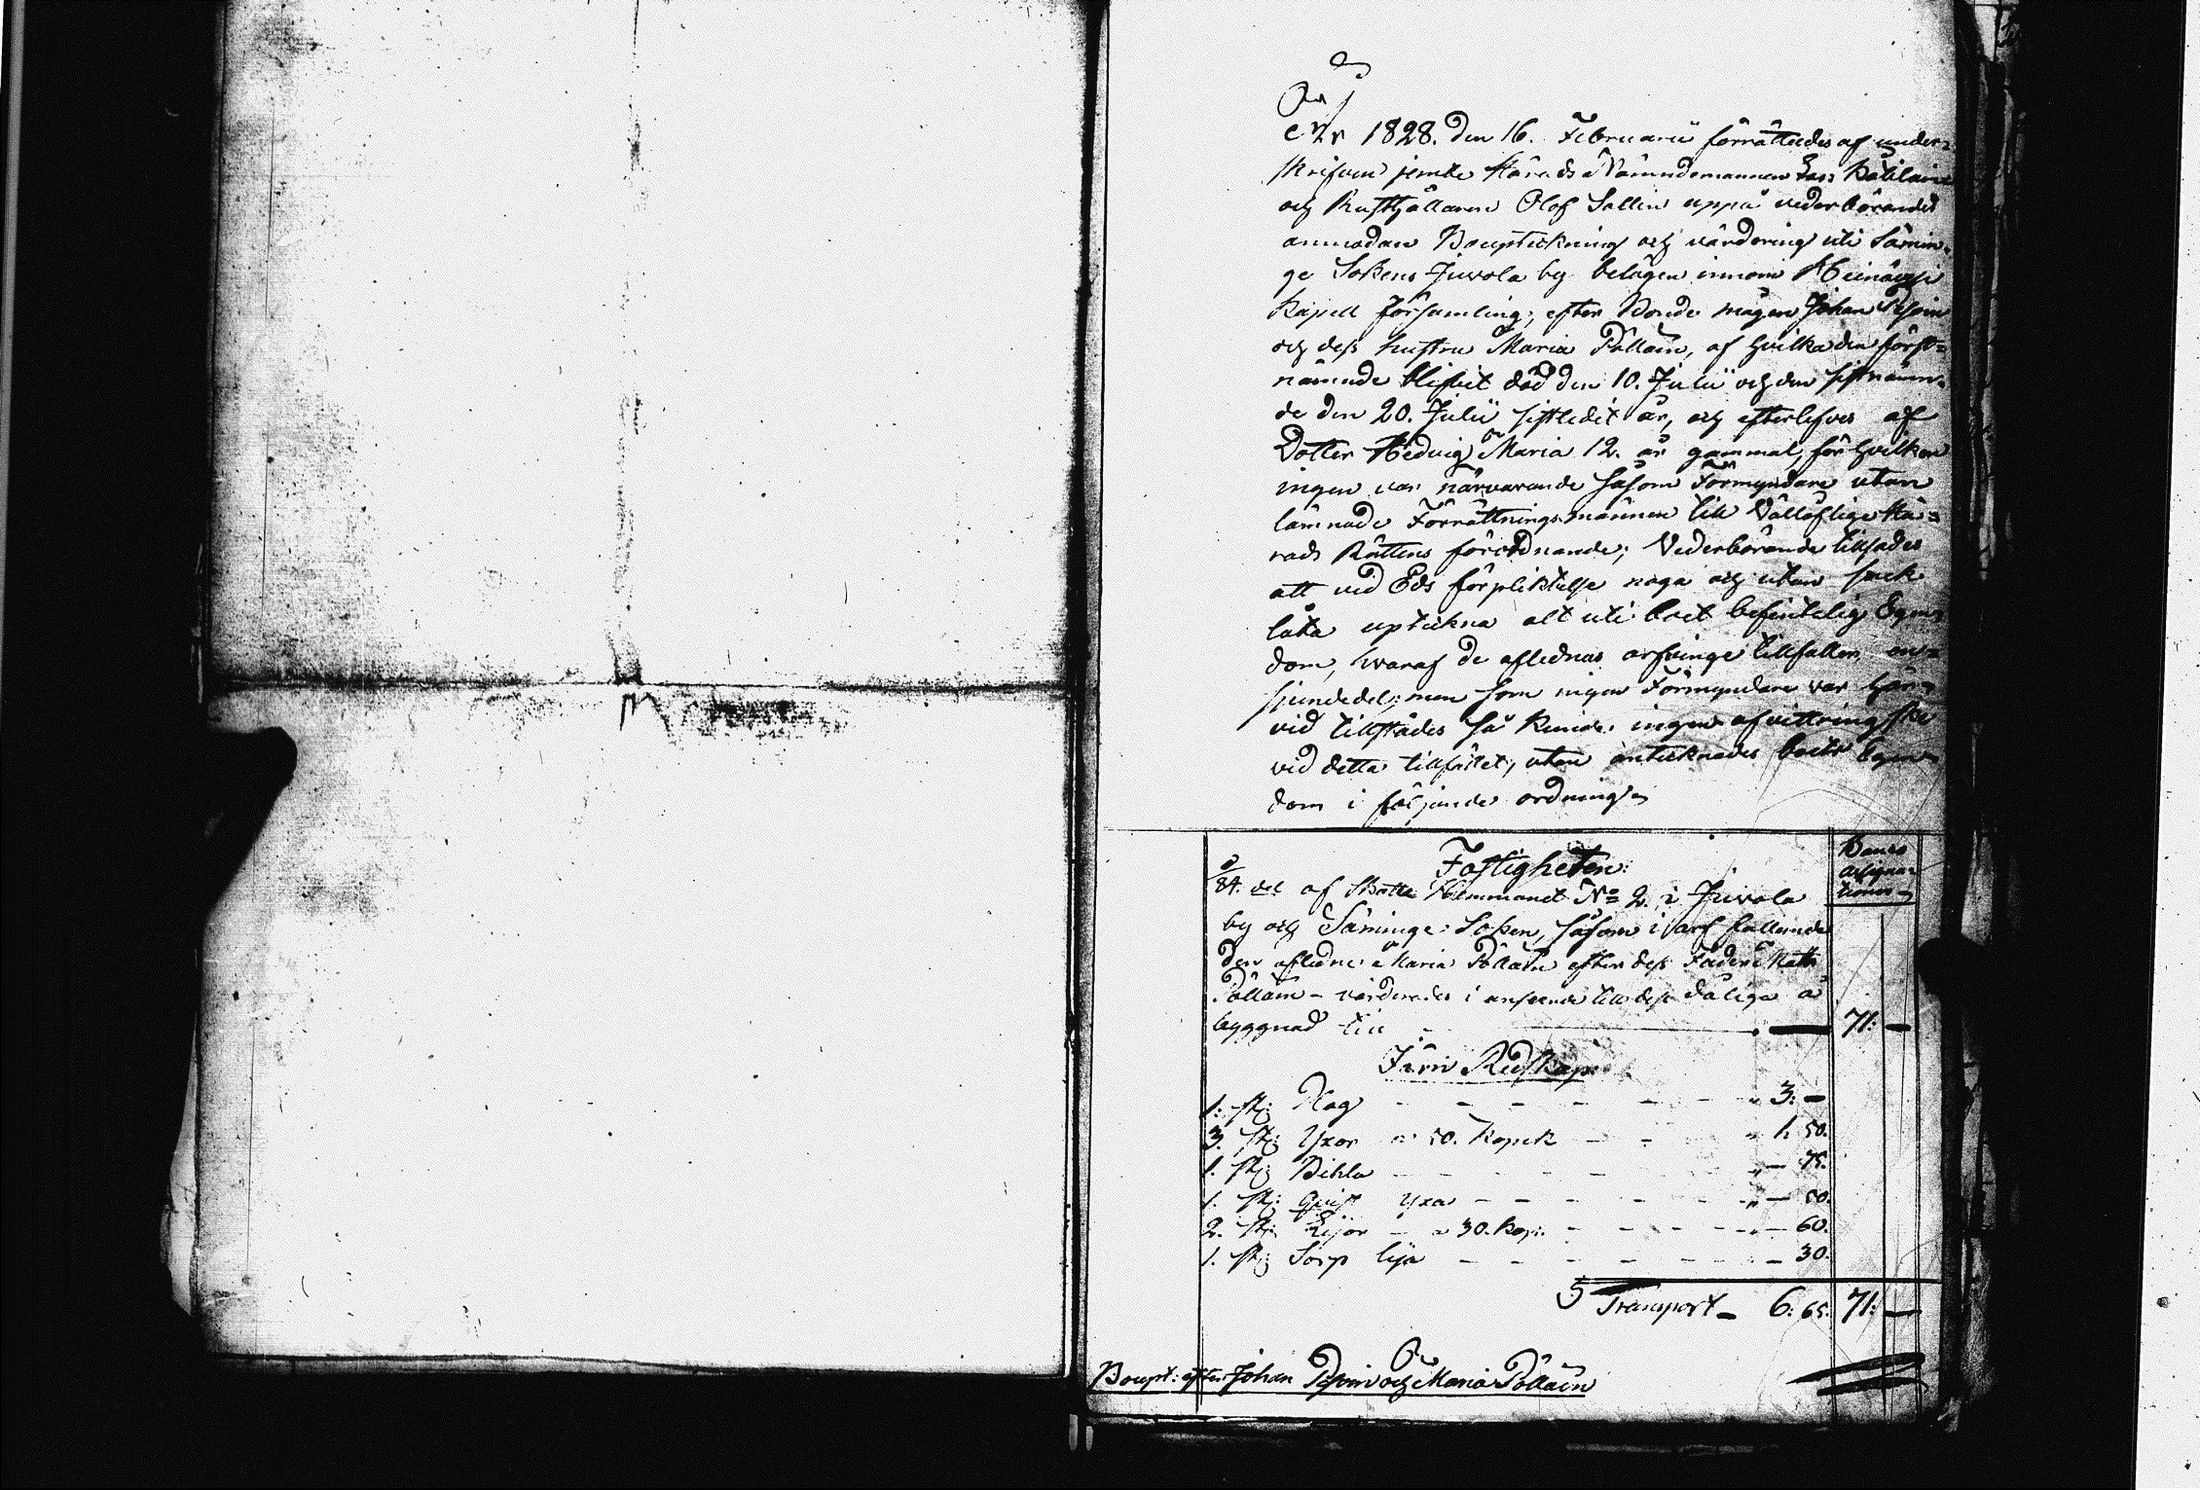 År 1828. den 16. Februarii förrättades af under-
skrifven jemte Härads Nämndemannen
och Rusthållaren Olof Sallin uppå vederbörandes
anmodan Bouptekning och värdering uti Sämin-
ge Sokens Juvola by belägen innom Heinävesi
Kapell församling, efter Bonde mågen Johan
och dess hustru Maria Pölläin, af hvilka den först-
nämnde blifvit död den 10. Julii och den sistnämn-
de den 20. Julii sistledit år, och efterlefves af
Dotter Hedvig Maria 12. år gammal, för hvilken
ingen var närvarande såsom Förmyndare utan
lämnade Förrättningsmännen till Vällöflige Hä-
rads Rättens förordnande; Vederbörande tillsades
att vid Eds förpliktelse noga och utan svek
låta uptekna alt uti boet befintelig Egen-
dom, hvaraf de aflednas arfvinge tillfaller en
sjundedel; men som ingen Förmyndare var här-
vid tillstädes så kunde ingen afvittring ske
vid detta tillfället, utan anteknades boets Egen-
dom i följande ordning
Fastigheten: Banco assigna- tioner
/84. del af Skatte Hemmanet No 2. i Juvola
by och Säminge Soken, såsom i arf fallende
den aflednе Maria Pölläin efter dess Fader Matts
Pölläin - värderades i anseende till dess dåliga å
byggnad till - 71: -
Järn Redskap
1. st: Plog - - - 3: -
3. st: Yxor a 50. Kopek - - 1. 50.
1. st: Bihla - - - 75.
1. st: Qvist yxa - - - 50.
2. st: Lijor - a 30. Kop: - - 60.
1. st: Sorp lija - - - 30.
Transport - 6: 65. 71: -
Boupt: efter Johan och Maria Pölläin